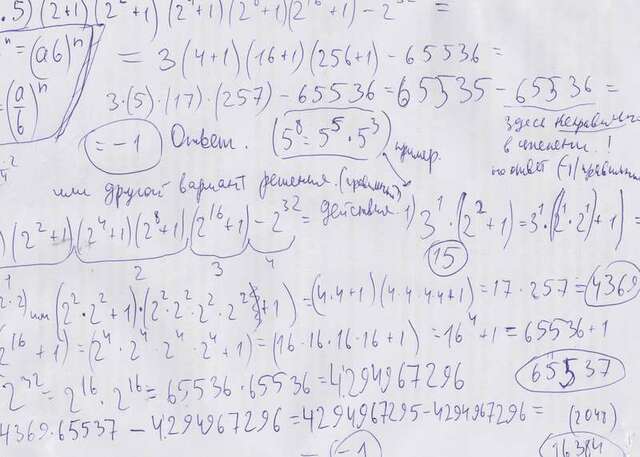 .5) (2+1) (2²+1) (2⁴+1) (2⁸+1) (2¹⁶+1) - 2³² =
ⁿ = (ab)ⁿ
= 3 (4+1) (16+1) (256+1) - 65536 =
= (a/b)ⁿ
3·(5)·(17)·(257) - 65536 = 65535 - 65536 =
= -1 Ответ. (5⁸ = 5⁵ · 5³) пример.
здесь неправильно
в степени !
но ответ (-1) правильн
или другой вариант решения. (правильный)
) (2²+1) (2⁴+1) (2⁸+1) (2¹⁶+1) - 2³² = действия. 1) 3¹·(2²+1) = 3¹·(2¹·2¹)+1) =
1 2 3 4
15
2·2) или (2²·2²+1)·(2²·2²·2²·2²+1) = (4·4+1) (4·4·4·4+1) = 17·257 = 4369
2¹⁶+1) = (2⁴·2⁴·2⁴·2⁴+1) = (16·16·16·16+1) = 16⁴+1 = 65536+1
65537
2³² = 2¹⁶·2¹⁶ = 65536·65536 = 4294967296
4369·65537 - 4294967296 = 4294967295 - 4294967296 =
= -1
16384